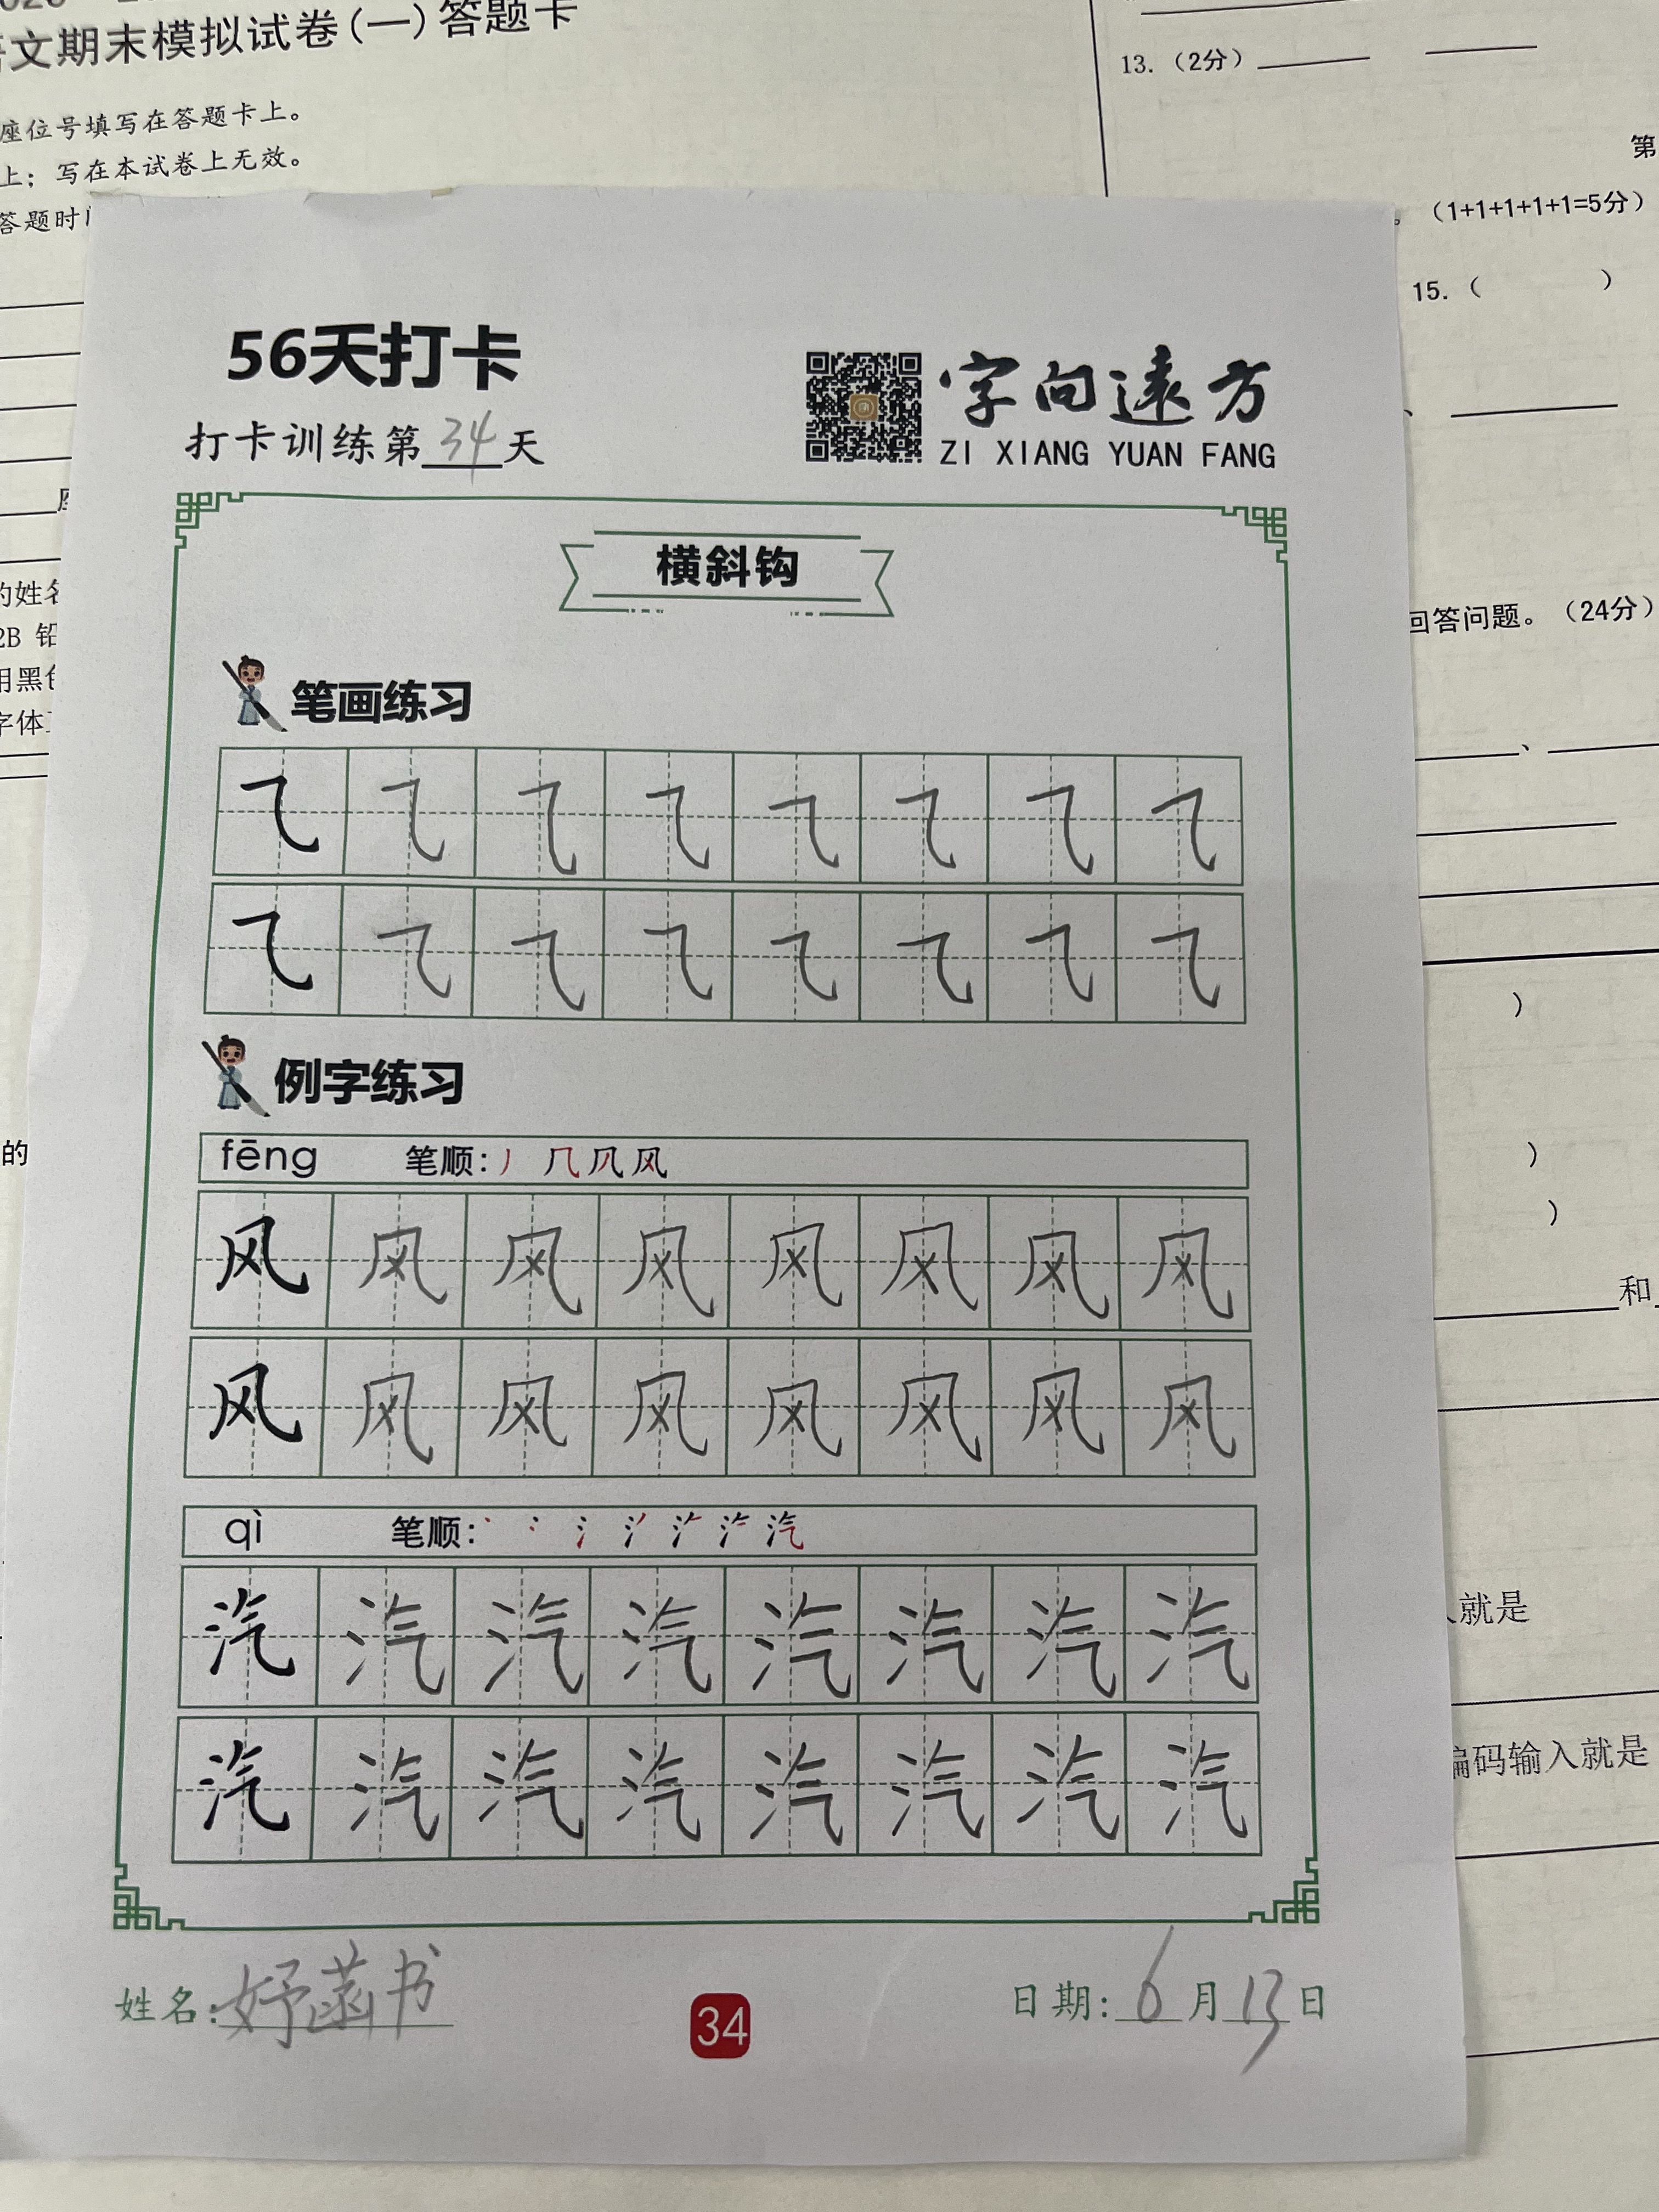 语文期末模拟试卷(一)答题卡
座位号填写在答题卡上。
上；写在本试卷上无效。
答题时
的姓名
2B 铅
用黑色
字体
的
13.（2分）
第
。（1+1+1+1+1=5分）
15.（ ）
、
回答问题。（24分）
、
）
）
）
和
入就是
编码输入就是
56天打卡
打卡训练第34天
字向遠方
ZI XIANG YUAN FANG
横斜钩
笔画练习
例字练习
fēng 笔顺：
风 风 风 风 风 风 风 风
风 风 风 风 风 风 风 风
qì 笔顺：
汽 汽 汽 汽 汽 汽 汽 汽
汽 汽 汽 汽 汽 汽 汽 汽
姓名：妤菡书
34
日期：6月13日